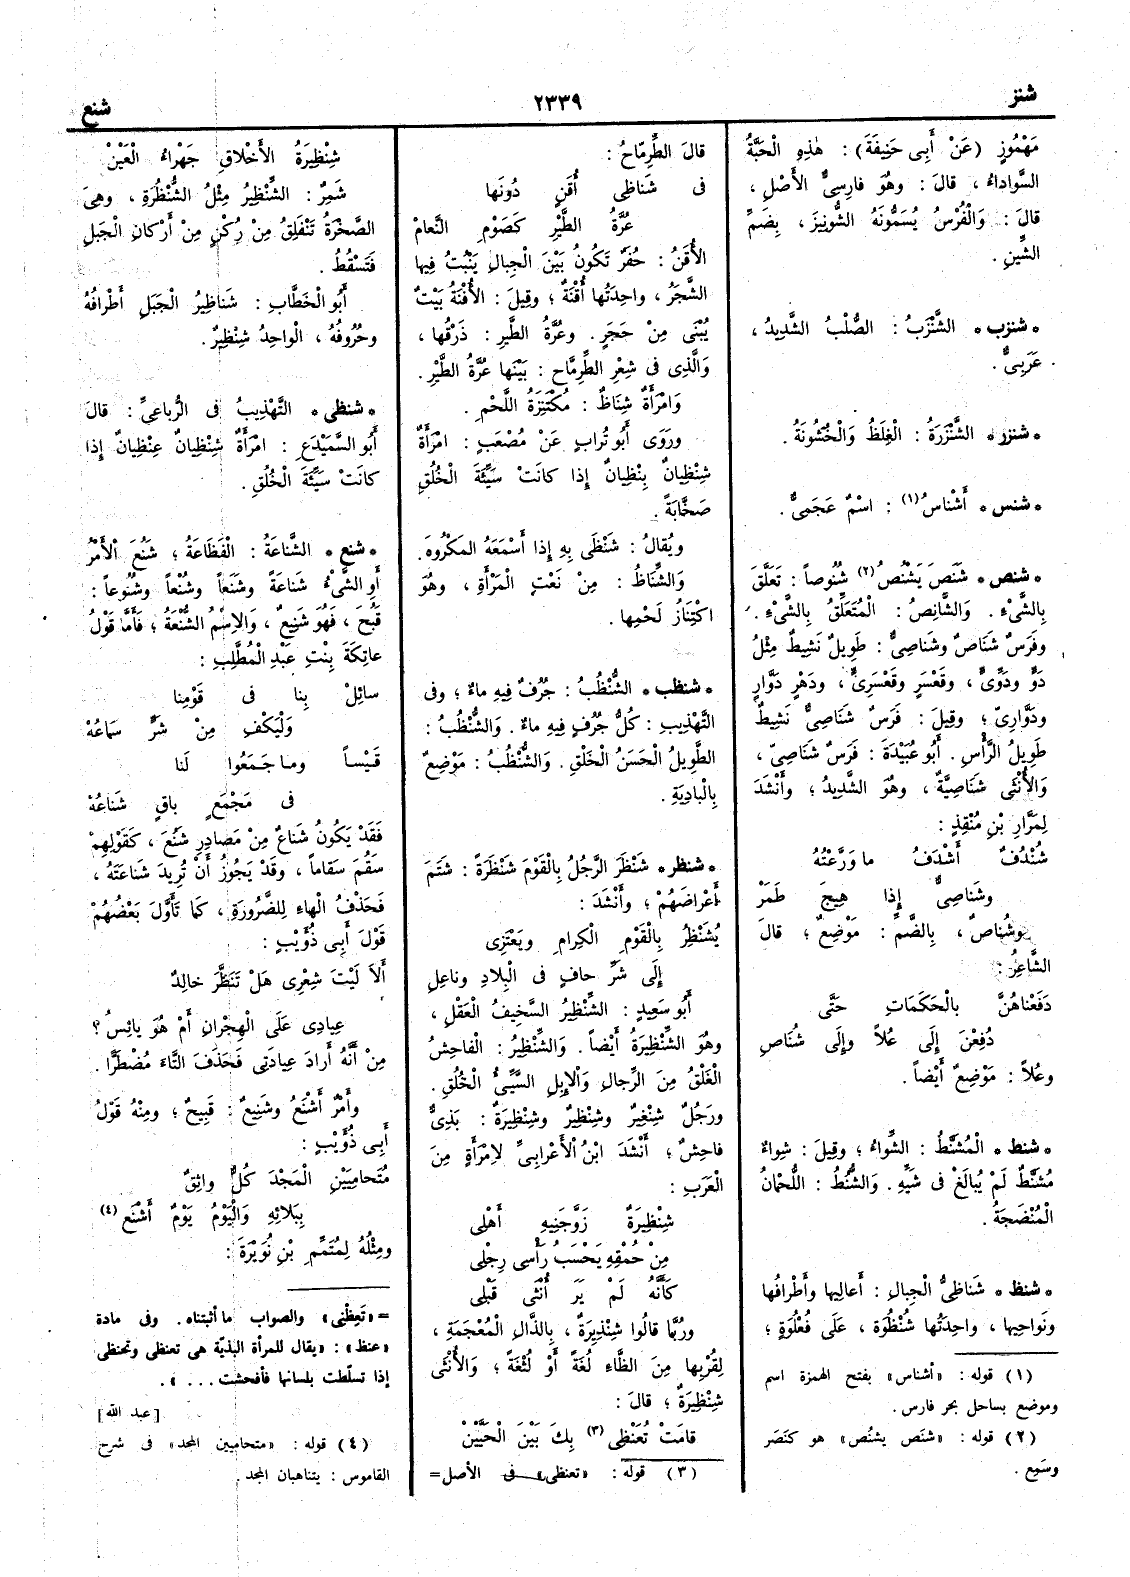 شنز
٢٣٣٩
شنع
مَهْمُوزٍ (عَنْ أَبِى حَنِيفَةَ) : هٰذِهِ الْحَبَّةُ
السَّوْاداءُ ، قالَ : وهُوَ فارِسِىُّ الأَصْلِ ،
قالَ : وَالْفُرْسُ يُسَمُّونَهُ الشُّونِيزَ ، بِضَمِّ
الشِّينِ .
* شنزب * الشَّنْزَبُ : الصُّلْبُ الشَّدِيدُ ،
عَرَبِىٌّ .
* شنزر * الشَّنْزَرَةُ : الْغِلَظُ وَالْخُشُونَةُ .
* شنس * أَشْناسُ (١) : اسْمٌ عَجَمِىٌّ .
* شنص * شَنَصَ يَشْنُصُ (٢) شُنُوصاً : تَعَلَّقَ
بِالشَّىْءِ . وَالشَّانِصُ : الْمُتَعَلِّقُ بِالشَّىْءِ .
وفَرَسٌ شَناصٌ وشَناصِىٌّ : طَوِيلٌ نَشِيطٌ مِثْلُ
دَوٍّ ودَوِّىٍّ ، وقَعْسَرٍ وقَعْسَرِىٍّ ، ودَهْرٍ دَوَّارٍ
ودَوَّارِىّ ؛ وقِيلَ : فَرَسٌ شَناصِىٌّ نَشِيطٌ
طَوِيلُ الرَّأْسِ . أَبُو عُبَيْدَةَ : فَرَسٌ شَناصِىّ ،
وَالأُنْثَى شَناصِيَّةٌ ، وهُوَ الشَّدِيدُ ؛ وأَنْشَدَ
لِمَرَّارِ بْنِ مُنْقِذٍ :
شُنْدُفٌ أَشْدَفُ ما وَرَّعْتُهُ
وشَناصِىٌّ إِذا هِيجَ طَمَرْ
وشُناصٌ ، بِالضَّمِّ : مَوْضِعٌ ؛ قالَ
الشَّاعِرُ :
دَفَعْناهُنَّ بِالْحَكَمَاتِ حَتَّى
دُفِعْنَ إِلَى عُلاً وإِلَى شُناصِ
وعُلاً : مَوْضِعٌ أَيْضاً .
* شنط * الْمُشَنَّطُ : الشِّواءُ ؛ وقِيلَ : شِواءٌ
مُشَنَّطٌ لَمْ يُبالَغْ فى شَيِّهِ . وَالشُّنُطُ : اللُّحْمانُ
الْمُنْضَجَةُ .
* شنظ * شَناظِىُّ الْجِبالِ : أَعالِيها وأَطْرافُها
ونَواحِيها ، واحِدَتُها شُنْظُوَة ، عَلَى فُعْلُوَةٍ ؛
(١) قوله : «أشناس» بفتح الهمزة اسم
وموضع بساحل بحر فارس .
(٢) قوله : «شنَص يشنُص» هو كنَصَر
وسَمِع .
قالَ الطِّرِمَّاحُ :
فى شَناظِى أُقَنٍ دُونَها
عُرَّةُ الطَّيْرِ كَصَوْمِ النَّعامْ
الأُقَنُ : حُفَرٌ تَكُونُ بَيْنَ الْجِبالِ يَنْبُتُ فِيها
الشَّجَرُ ، واحِدَتُها أُقْنَةٌ ؛ وقِيلَ : الأُقْنَةُ بَيْتٌ
يُبْنَى مِنْ حَجَرٍ . وعُرَّةُ الطَّيرِ : ذَرْقُها ،
وَالَّذِى فى شِعْرِ الطِّرِمَّاحِ : بَيْنَها عُرَّةُ الطَّيْرِ .
وَامْرَأَةٌ شِناظٌ : مُكْتَنِزَةُ اللَّحْمِ .
ورَوَى أَبُو تُرابٍ عَنْ مُصْعَبٍ : امْرَأَةٌ
شِنْظِيانٌ بِنْظِيانٌ إِذا كانَتْ سَيِّئَةَ الْخُلُقِ
صَخَّابَةً .
ويُقالُ : شَنْظَى بِهِ إِذا أَسْمَعَهُ المَكْرُوهَ .
وَالشِّناظُ : مِنْ نَعْتِ الْمَرْأَةِ ، وهُوَ
اكْتِنازُ لَحْمِها .
* شنظب * الشُّنْظُبُ : جُرُفٌ فِيهِ ماءٌ ؛ وفى
التَّهْذِيبِ : كُلُّ جُرُفٍ فِيهِ ماءٌ . وَالشُّنْظُبُ :
الطَّوِيلُ الْحَسَنُ الْخَلْقِ . وَالشُّنْظُبُ : مَوْضِعٌ
بِالْبادِيَةِ .
* شنظر * شَنْظَرَ الرَّجُلُ بِالْقَوْمِ شَنْظَرَةً : شَتَمَ
أَعْراضَهُمْ ؛ وأَنْشَدَ :
يُشَنْظِرُ بِالْقَوْمِ الْكِرامِ ويَعْتَزِى
إِلَى شَرِّ حافٍ فى الْبِلادِ وناعِلِ
أَبُو سَعِيدٍ : الشِّنْظِيرُ السَّخِيفُ الْعَقْلِ ،
وهُوَ الشِّنْظِيرَةُ أَيْضاً . وَالشِّنْظِيرُ : الْفاحِشُ
الْغَلْقُ مِنَ الرِّجالِ وَالإِبِلِ السَّيِّئُ الْخُلُقِ .
ورَجُلٌ شِنْغِيرٌ وشِنْظِيرٌ وشِنْظِيرَةٌ : بَذِىٌّ
فاحِشٌ ؛ أَنْشَدَ ابْنُ الْأَعْرابِىِّ لاِمْرَأَةٍ مِنَ
الْعَرَبِ :
شِنْظِيرَةٌ زَوَّجَنِيهِ أَهْلِى
مِنْ حُمْقِهِ يَحْسَبُ رَأْسِى رِجْلِى
كَأَنَّهُ لَمْ يَرَ أُنْثَى قَبْلِى
ورُبَّما قالُوا شِنْذِيرَةٌ ، بِالذَّالِ الْمُعْجَمَةِ ،
لِقُرْبِها مِنَ الظَّاءِ لُغَةٌ أَوْ لُثْغَةٌ ؛ وَالأُنْثَى
شِنْظِيرَةٌ ؛ قالَ :
قامَتْ تُعَنْظِى (٣) بِكَ بَيْنَ الْحَيَّيْنْ
(٣) قوله : «تعنظى» فى الأصل=
شِنْظِيرَةُ الأَخْلاقِ جَهْراءُ الْعَيْنْ
شَمِرٌ : الشِّنْظِيرُ مِثْلُ الشُّنْظُرَةِ ، وهِىَ
الصَّخْرَةُ تَنْفَلِقُ مِنْ رُكْنٍ مِنْ أَرْكانِ الْجَبَلِ
فَتَسْقُطُ .
أَبُو الْخَطَّابِ : شَناظِيرُ الْجَبَلِ أَطْرافُهُ
وحُرُوفُهُ ، الْواحِدُ شِنْظِيرٌ .
* شنظى * التَّهْذِيبُ فى الرُّباعِىِّ : قالَ
أَبُو السَّمَيْدَعِ : امْرَأَةٌ شِنْظِيانٌ عِنْظِيانٌ إِذا
كانَتْ سَيِّئَةَ الْخُلُقِ .
* شنع * الشَّناعَةُ : الْفَظاعَةُ ؛ شَنُعَ الْأَمْرُ
أَوِ الشَّىْءُ شَناعَةً وشَنَعاً وشُنْعاً وشُنُوعاً :
قَبُحَ ، فَهُوَ شَنِيعٌ ، وَالاِسْمُ الشُّنْعَةُ ؛ فَأَمَّا قَوْلُ
عاتِكَةَ بِنْتِ عَبْدِ الْمُطَّلِبِ :
سائِلْ بِنا فى قَوْمِنا
وَلْيَكْفِ مِنْ شَرٍّ سَماعُهْ
قَيْساً وما جَمَعُوا لَنا
فى مَجْمَعٍ باقٍ شَناعُهْ
فَقَدْ يَكُونُ شَناعٌ مِنْ مَصادِرِ شَنُعَ ، كَقَوْلِهِمْ
سَقُمَ سَقاماً ، وقَدْ يَجُوزُ أَنْ تُرِيدَ شَناعَتَهُ ،
فَحَذْفُ الْهاءِ لِلضَّرُورَةِ ، كَما تَأَوَّلَ بَعْضُهُمْ
قَوْلَ أَبِى ذُؤَيْبٍ :
أَلاَ لَيْتَ شِعْرِى هَلْ تَنَظَّرَ خالِدٌ
عِيادِى عَلَى الْهِجْرانِ أَمْ هُوَ يائِسُ ؟
مِنْ أَنَّهُ أَرادَ عِيادَتِى فَحَذَفَ التَّاءَ مُضْطَرًّا .
وأَمْرٌ أَشْنَعُ وشَنِيعٌ : قَبِيحٌ ؛ ومِنْهُ قَوْلُ
أَبِى ذُؤَيْبٍ :
مُتَحامِيَيْنِ الْمَجْدَ كُلٌّ واثِقٌ
بِبَلائِهِ وَالْيَوْمُ يَوْمٌ أَشْنَع (٤)
ومِثْلُهُ لِمُتَمِّمِ بْنِ نُوَيْرَةَ :
=«تَعِظْنِى» والصواب ما أثبتناه . وفى مادة
«عنظ» : «يقال للمرأة البذيّة هى تعنظى وتحنظى
إذا تسلّطت بلسانها فأفحشت ... » .
[عبد الله]
(٤) قوله : «متحاميين المجد» فى شرح
القاموس : يتناهبان المجد .